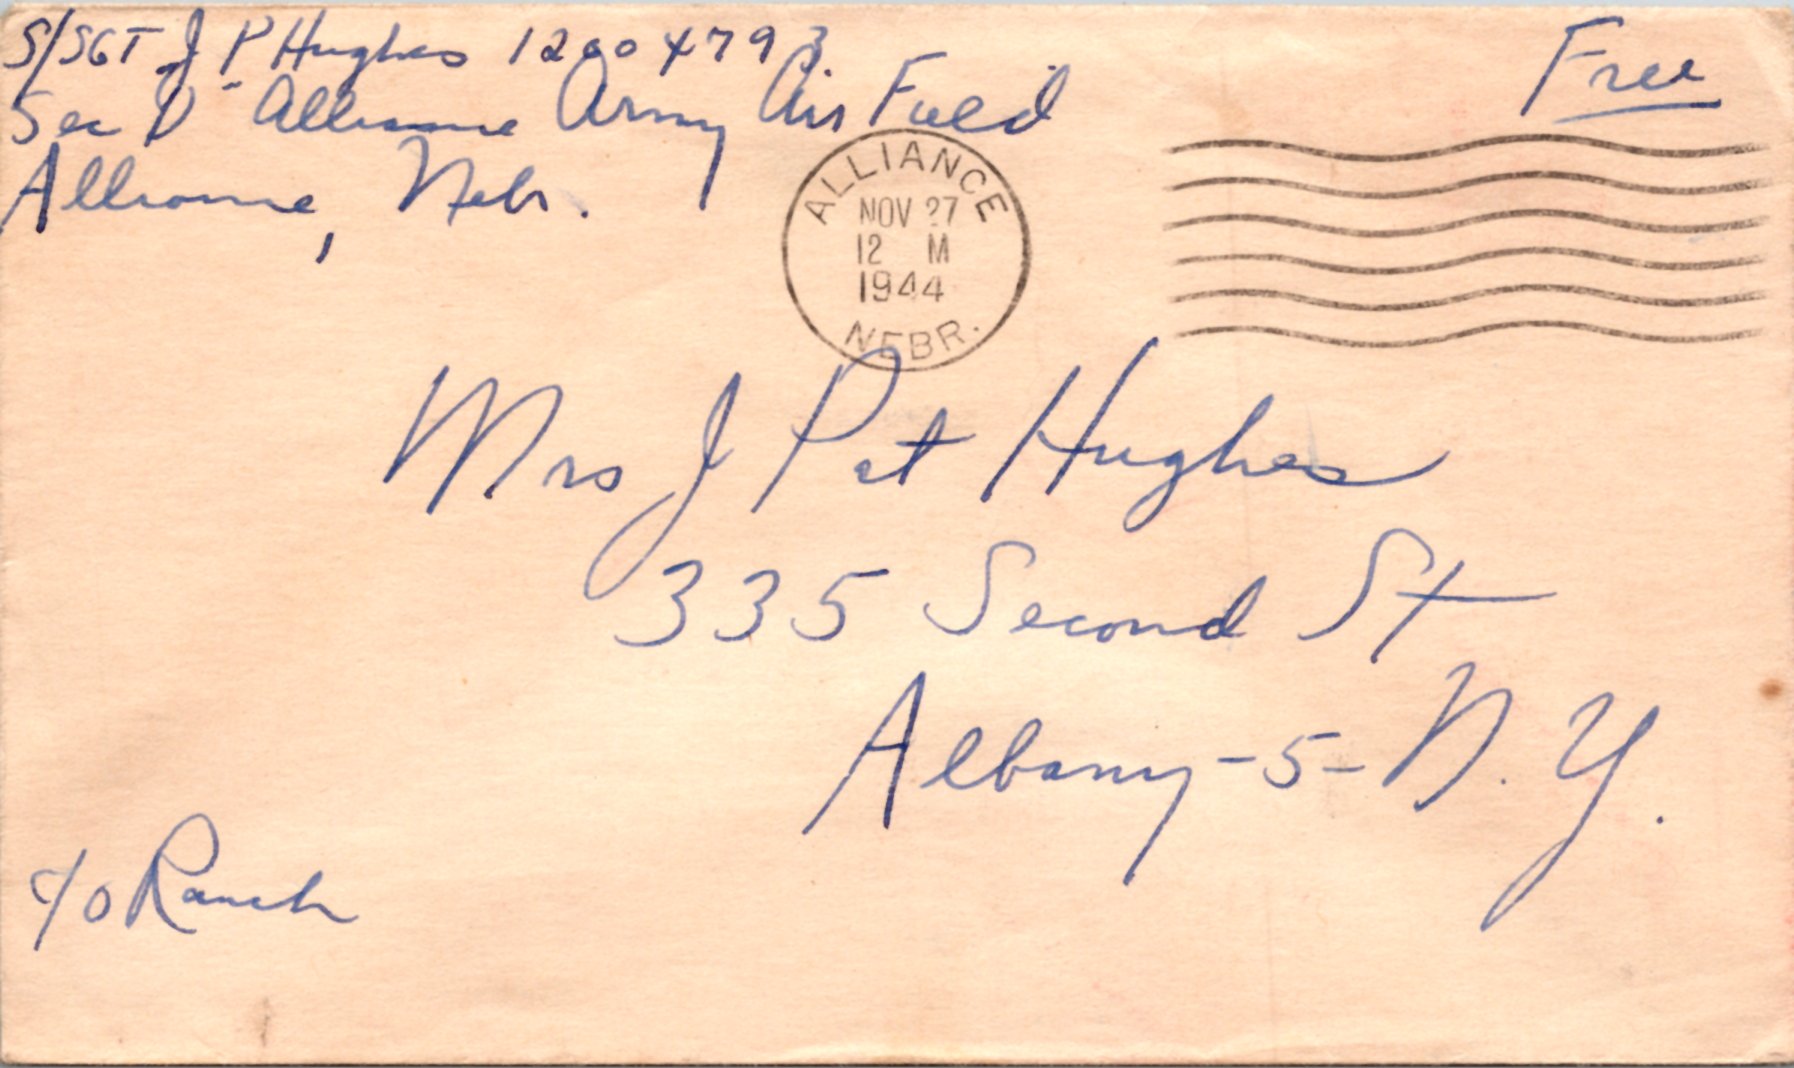 S/SGT J P Hughes 12004793
Sec D Alliance Army Air Field
Alliance, Nebr.
Free
ALLIANCE
NOV 27
12 M
1944
NEBR.
Mrs J Pat Hughes
335 Second St
Albany -5- N. Y.
c/o Ranch